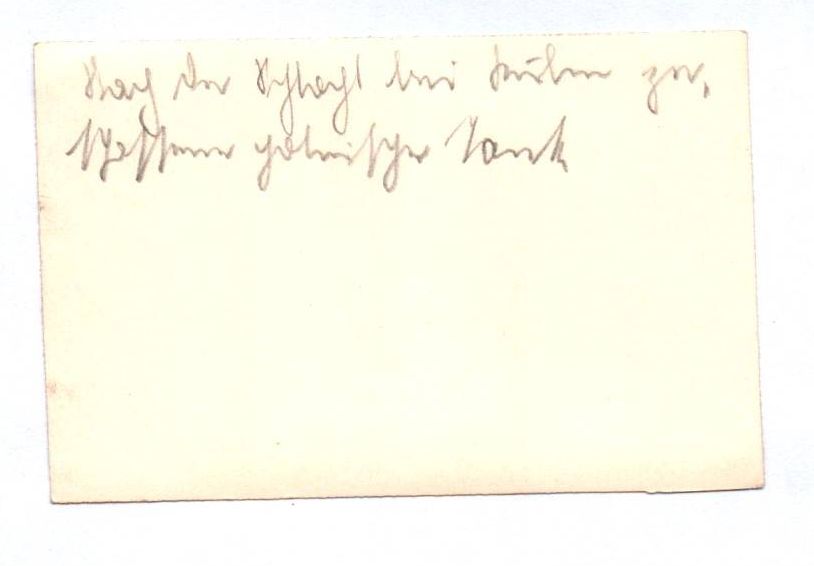 Nach der Schlacht bei zer-
schossener polnischer Tank